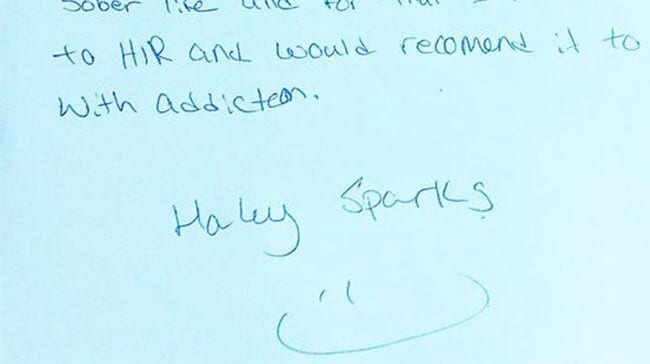 Sober life and for that
to HIR and would recomend it to
with addicteon.
Haley Sparks